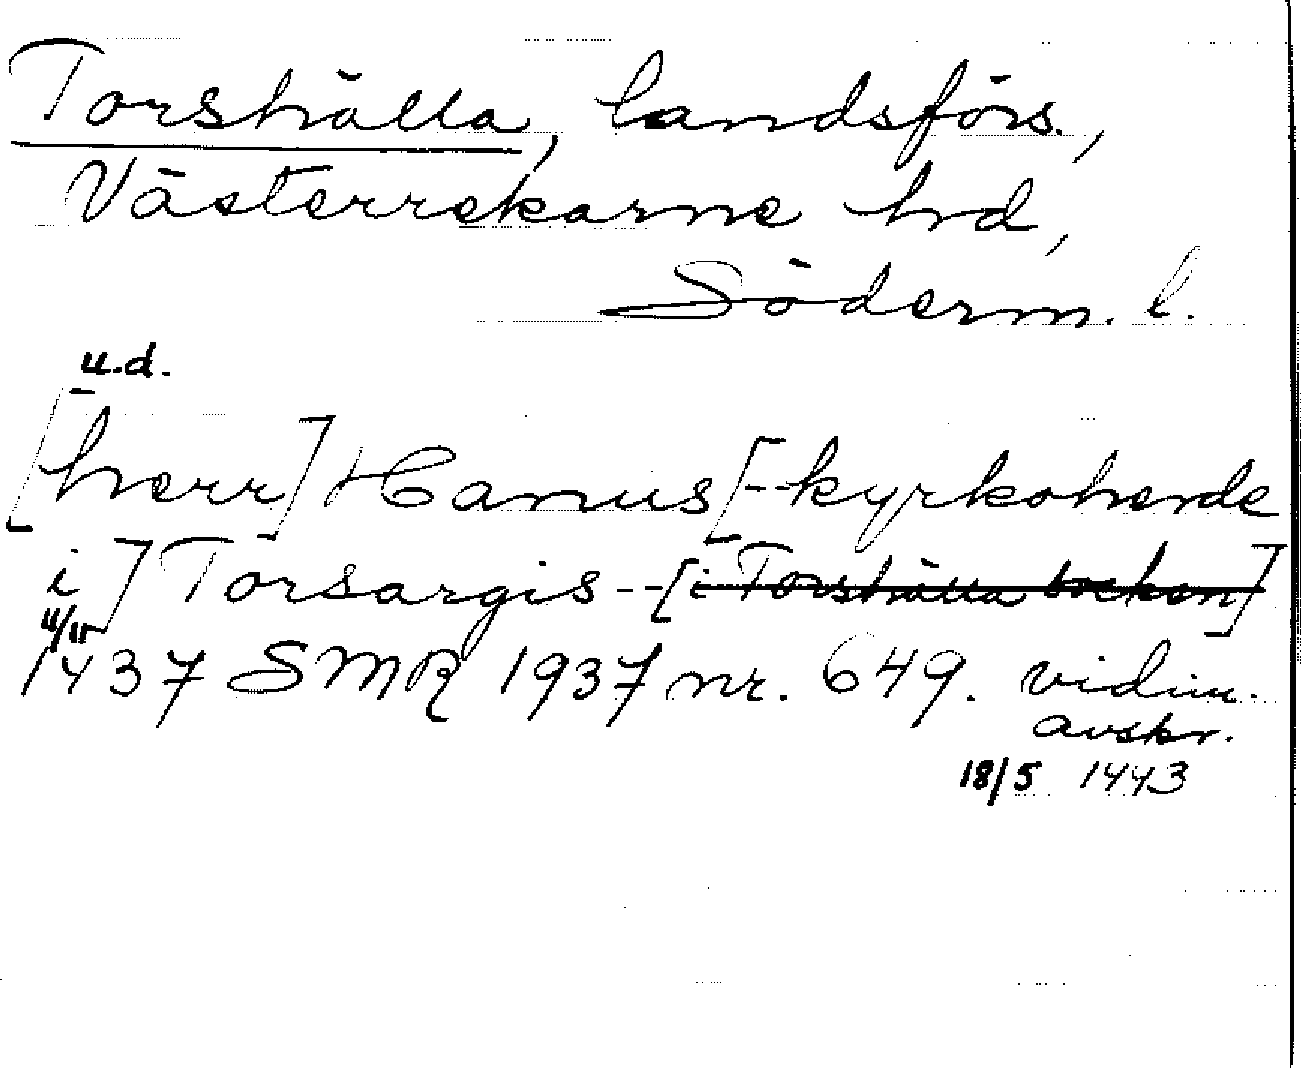 Torshälla, landsförs.,
Västerrekarne hd,
Söderm. l.
u.d.
[herr] Hanus [--kyrkoherde
i] Torsargis--[i Torshälla socken]
11/11
1437 SMR 1937 nr. 649. vidim.
avskr.
18/5 1443